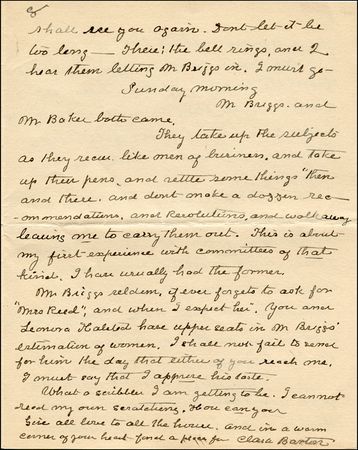 8
shall see you again. Dont let it be
too long — There! the bell rings, and I
hear them letting Mr Briggs in. I must go-
Sunday morning
Mr Briggs. and
Mr Baker both came.
They take up the subjects
as they recur like men of business, and take
up their pens, and settle some things "then
and there. and dont make a dozzen rec-
ommendations, and Resolutions, and walk away
leaving me to carry them out. This is about
my first experience with committees of that
kind. I have usually had the former.
Mr Briggs seldom, if ever forgets to ask for
"Mrs Reed", and when I expect her. You and
Leonora Halsted have upper seats in Mr Briggs'
estimation of women. I shall not fail to send
for him the day that either of you reach me.
I must say that I approve his taste.
What a scribbler I am getting to be. I cannot
read my own scratchings. How can you
Give all love to all the house. and in a warm
corner of your heart find a place for Clara Barton